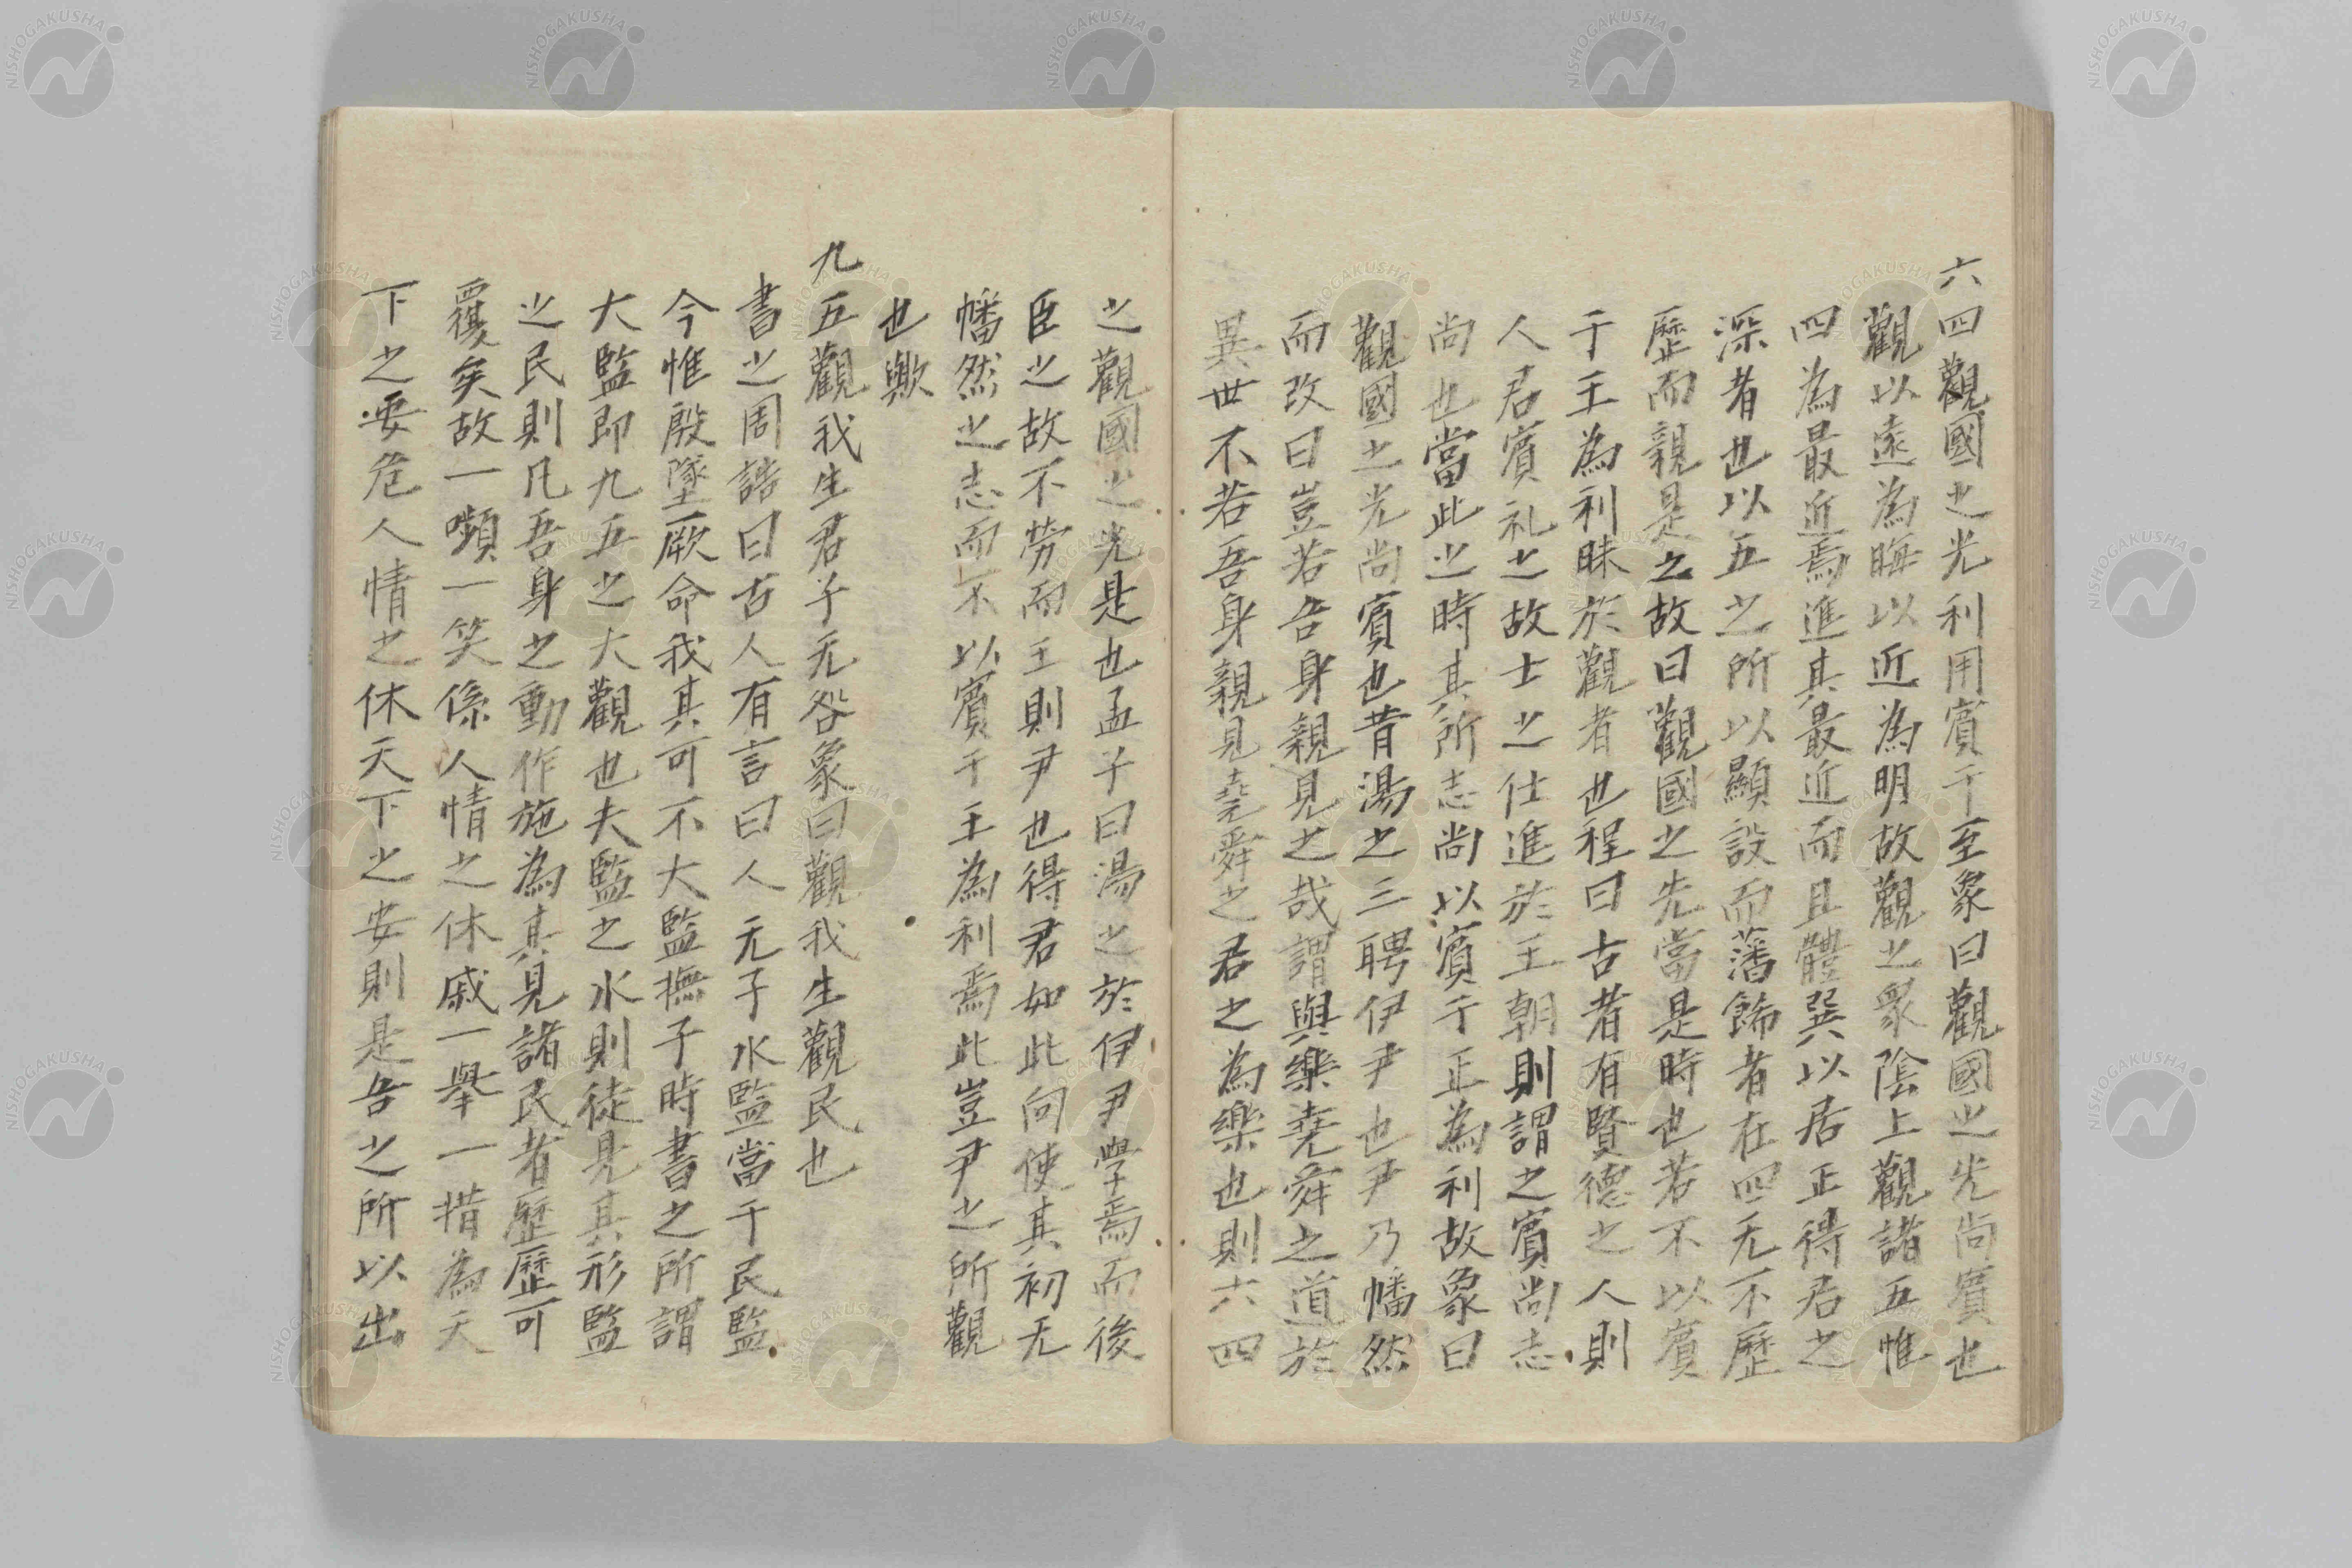 六四觀國之光利用賓于王象曰觀國之光尚賓也
觀以遠為晦以近為明故觀之衆陰上觀諸五惟
四為最近焉進其最近而且體巽以居正得君之
深者也以五之所以顯設而藩飾者在四无不歷
歷而親是之故曰觀國之光當是時也若不以賓
于王為利昧於觀者也程曰古者有賢德之人則
人君賓礼之故士之仕進於王朝則謂之賓尚志
尚也當此之時其所志尚以賓于王為利故象曰
觀國之光尚賓也昔湯之三聘伊尹也尹乃幡然
而改曰豈若吾身親見之哉謂與樂堯舜之道於
異世不若吾身親見堯舜之君之為樂也則六四
之觀國之光是也孟子曰湯之於伊尹學焉而後
臣之故不勞而王則尹也得君如此向使其初无
幡然之志而不以賓于王為利焉此豈尹之所觀
也歟
九五觀我生君子无咎象曰觀我生觀民也
書之周誥曰古人有言曰人无于水監當于民監
今惟殷墜厥命我其可不大監撫于時書之所謂
大監即九五之大觀也夫監之水則徒見其形監
之民則凡吾身之動作施為其見諸民者歷歷可
覆矣故一嚬一笑係人情之休戚一舉一措為天
下之安危人情之休天下之安則是吾之所以出